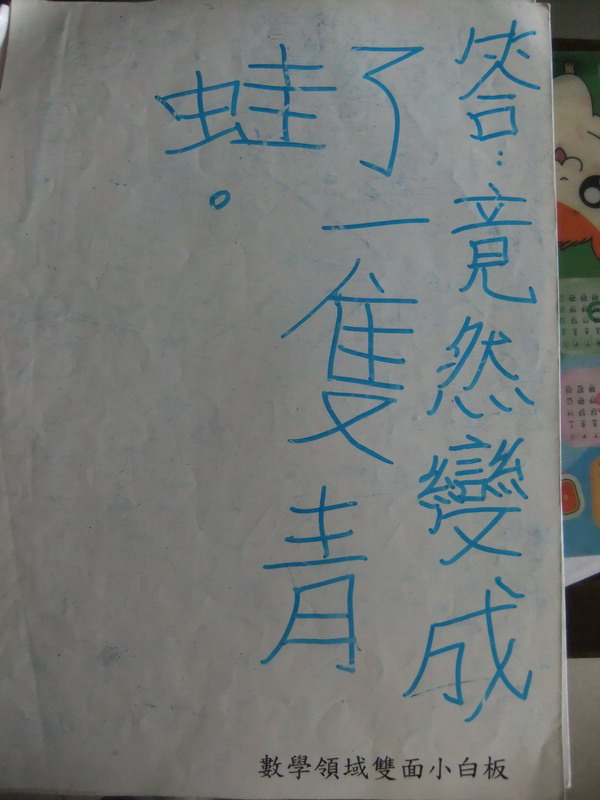 答：竟然變成
了一隻青
蛙。
數學領域雙面小白板